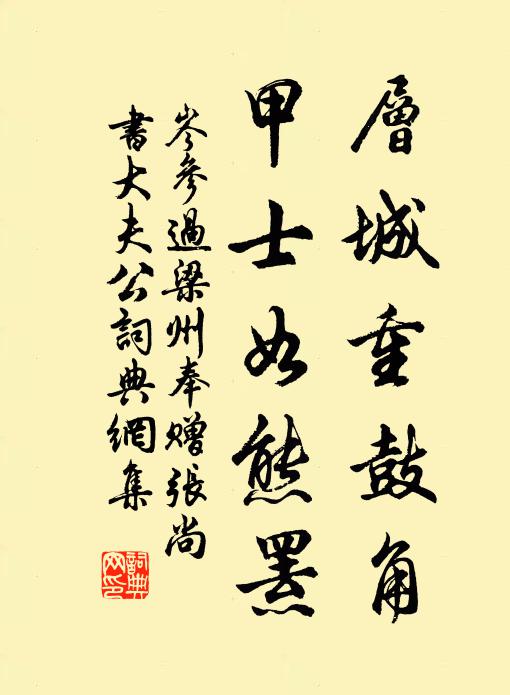 層城重鼓角
甲士如熊罴
岑參過梁州奉贈張尚
書大夫公詞典網集
詞典
网印